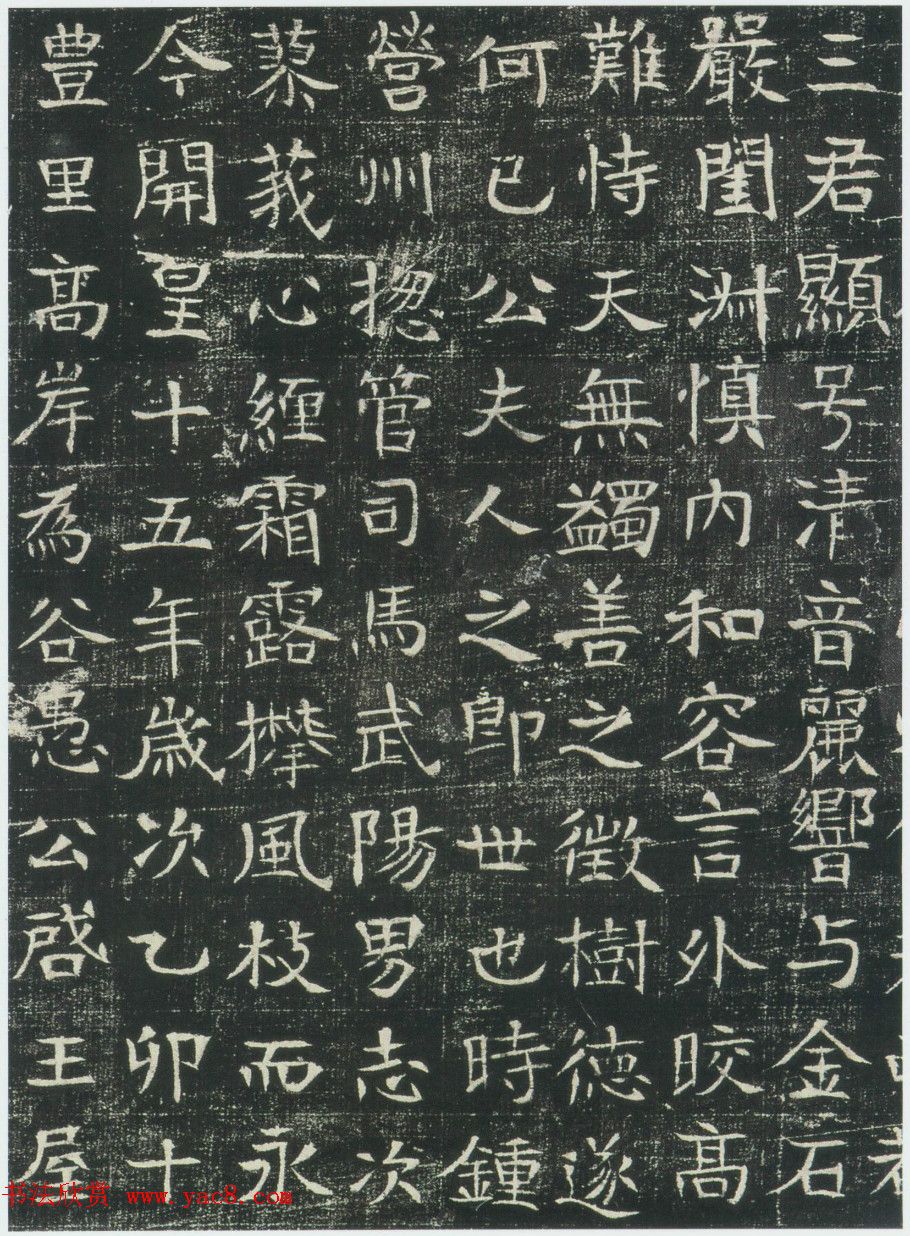 三君顯号清音麗響与金石
嚴閨渊慎内和容言外皎高
難恃天無蠲善之徵樹德遂
何已公夫人之即世也時鍾
營州揔管司馬武陽男志次
蓼莪心緾霜露攀風枝而永
今開皇十五年歲次乙卯十
豊里高岸為谷愚公啓王屋
书法欣赏 www.yac8.com